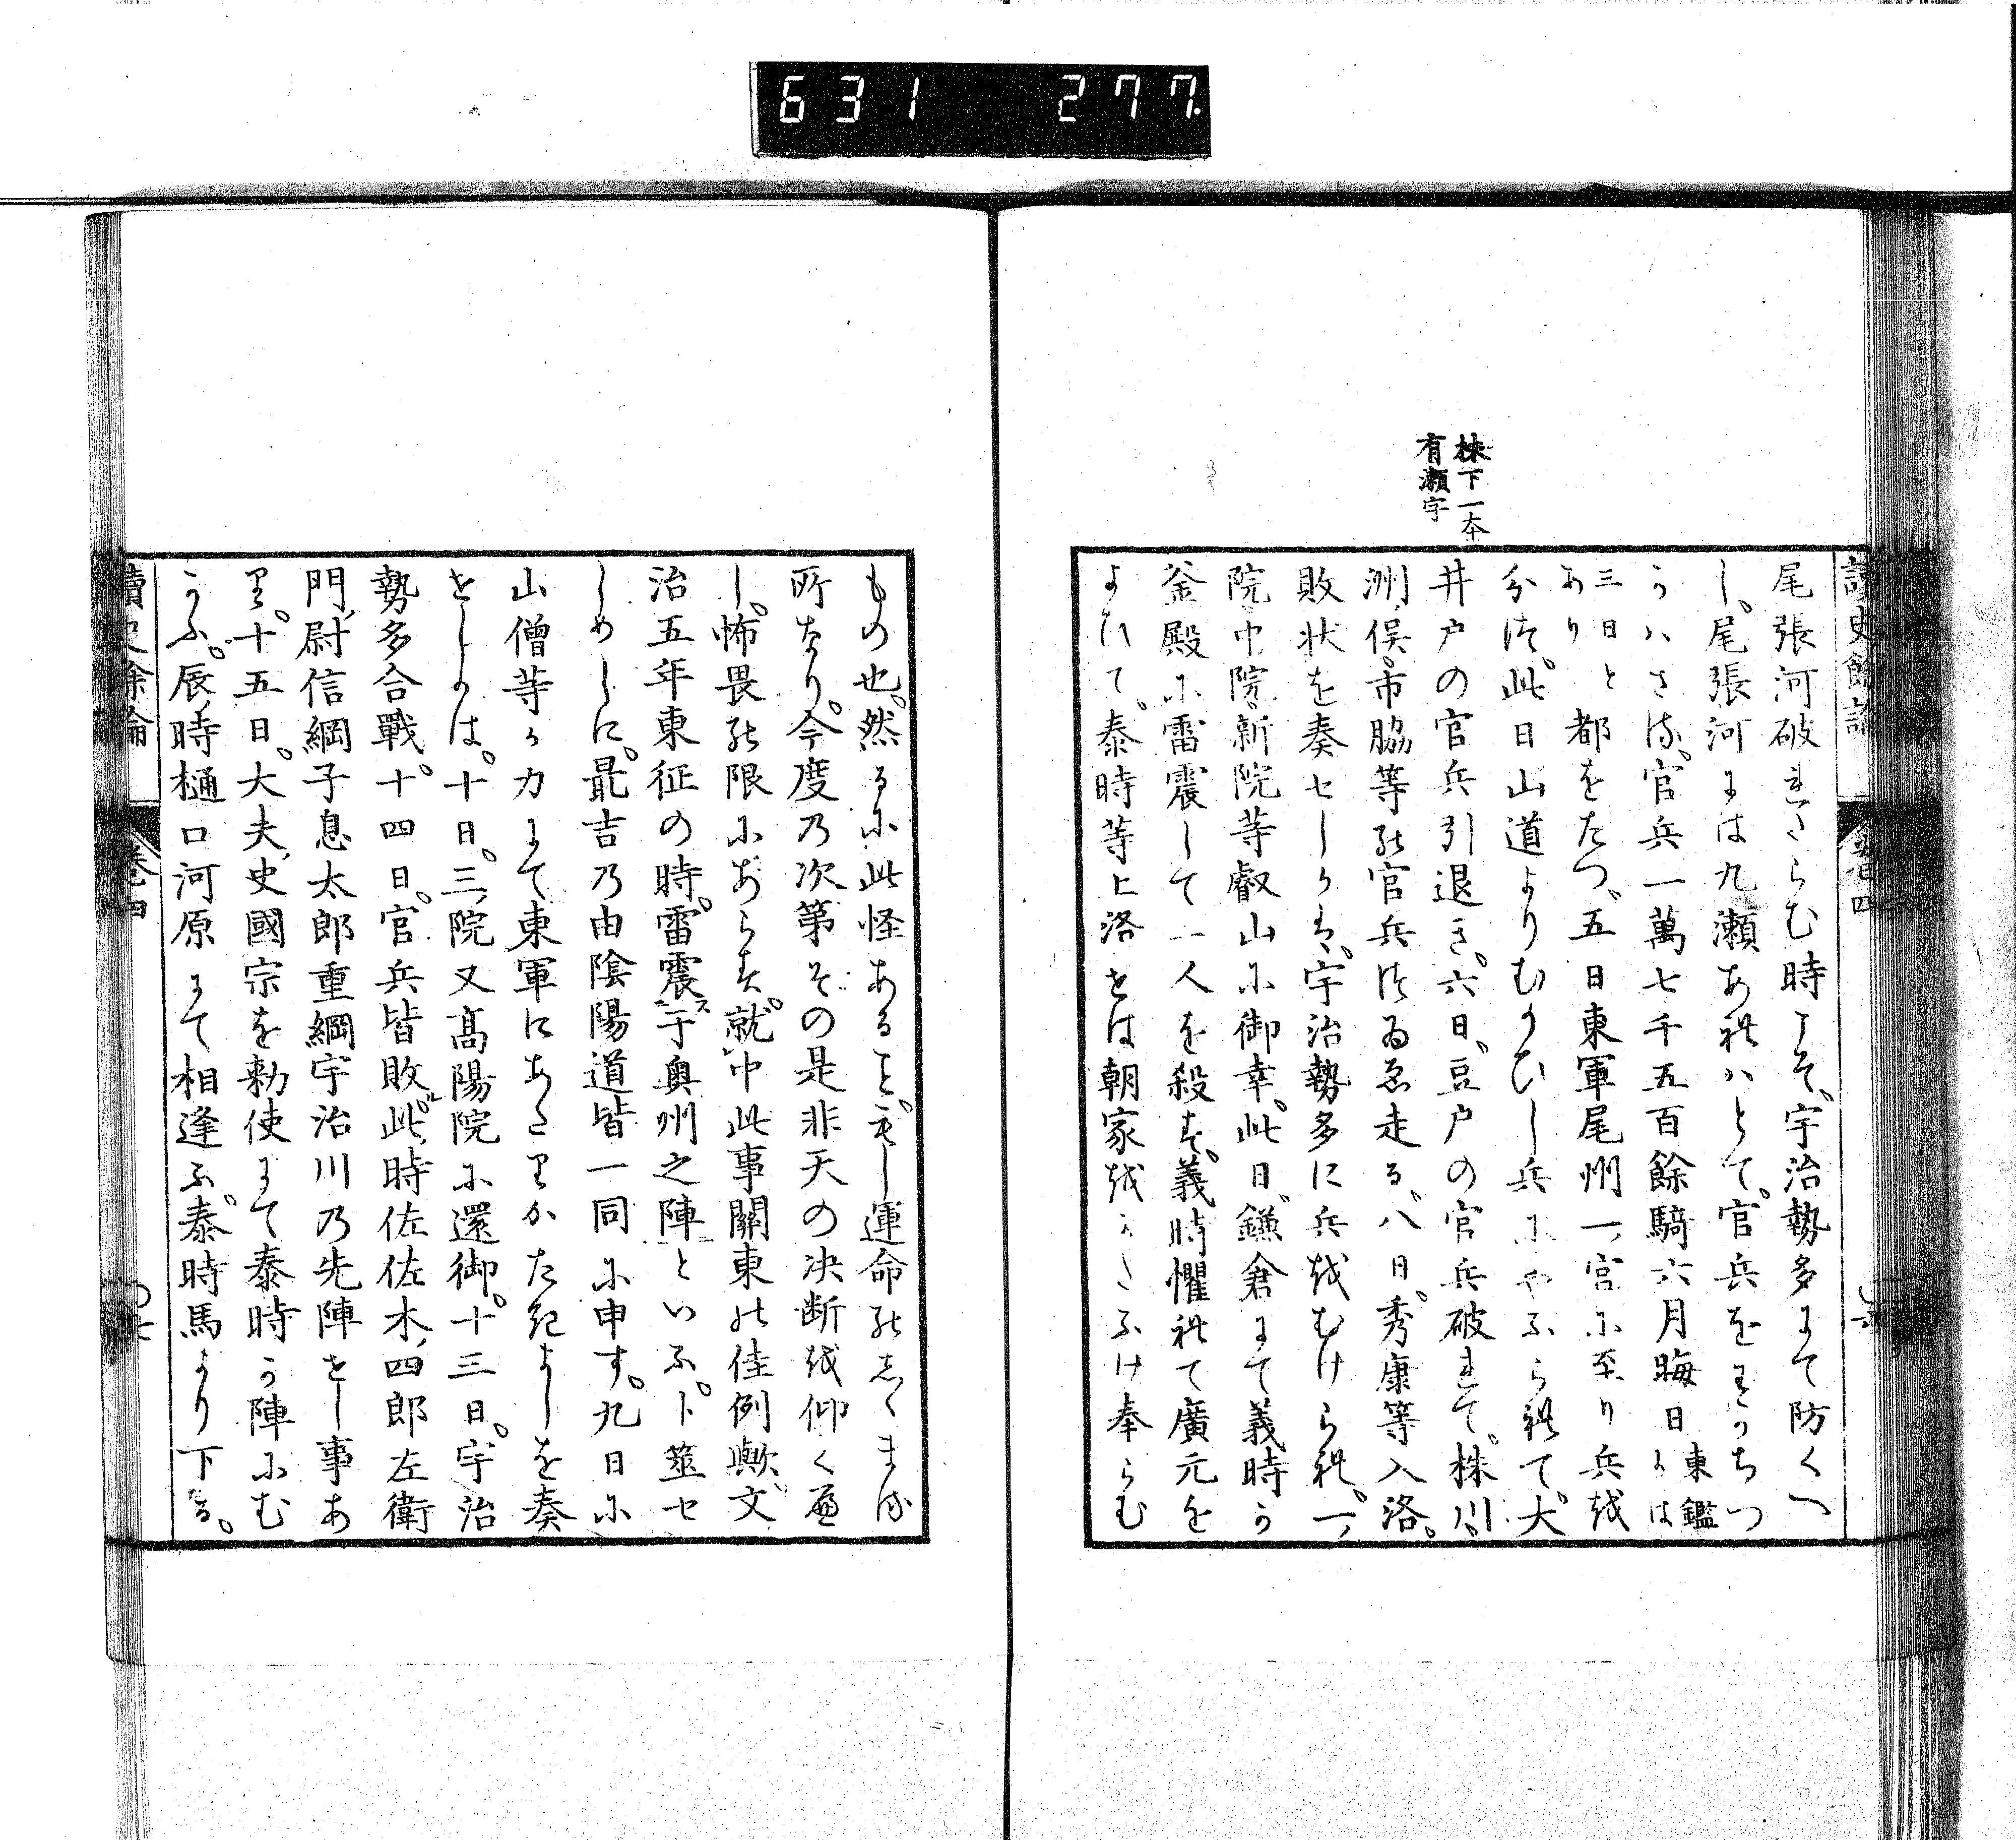 631 277.
株下一本
有瀬字
讀史餘論 巻四
尾張河破れさらむ時こそ宇治勢多にて防くへ
し。尾張河には九瀬あれハとて。官兵をわかちつ
かハさる。官兵一萬七千五百餘騎六月晦日東鑑には
三日とあり都をたつ。五日東軍尾州一宮に至り兵を
分つ。此日山道よりむかひし兵にやふられて。大
井戸の官兵引退き。六日。豆戸の官兵破れて。株川。
洲俣。市脇等の官兵つゐゑ走る。八日。秀康等入洛。
敗状を奏セしかは。宇治勢多に兵をむけられ。一
院中院新院等叡山に御幸。此日鎌倉にて義時か
釜殿に雷震して一人を殺す。義時懼れて廣元を
よひて。泰時等上洛せは朝家をかたふけ奉らむ
もの也。然るに此怪あること。もし運命のしゝまる
所なり。今度乃次第その是非天の決断を仰く處
し。怖畏の限にあらす。就中此事關東の佳例歟。文
治五年東征の時。雷震ス于奥州之陣といふ。卜筮セ
しめしに。最吉乃由陰陽道皆一同に申す。九日に
山僧等か力にて東軍にあたりかたきよしを奏
せしかは。十日。三院又高陽院に還御。十三日。宇治
勢多合戰。十四日。官兵皆敗此時佐佐木四郎左衛
門尉信綱子息太郎重綱宇治川乃先陣せし事あ
り。十五日。大夫史國宗を勅使にて泰時か陣にむ
かふ。辰時樋口河原にて相逢ふ。泰時馬より下る。
讀史餘論 巻四